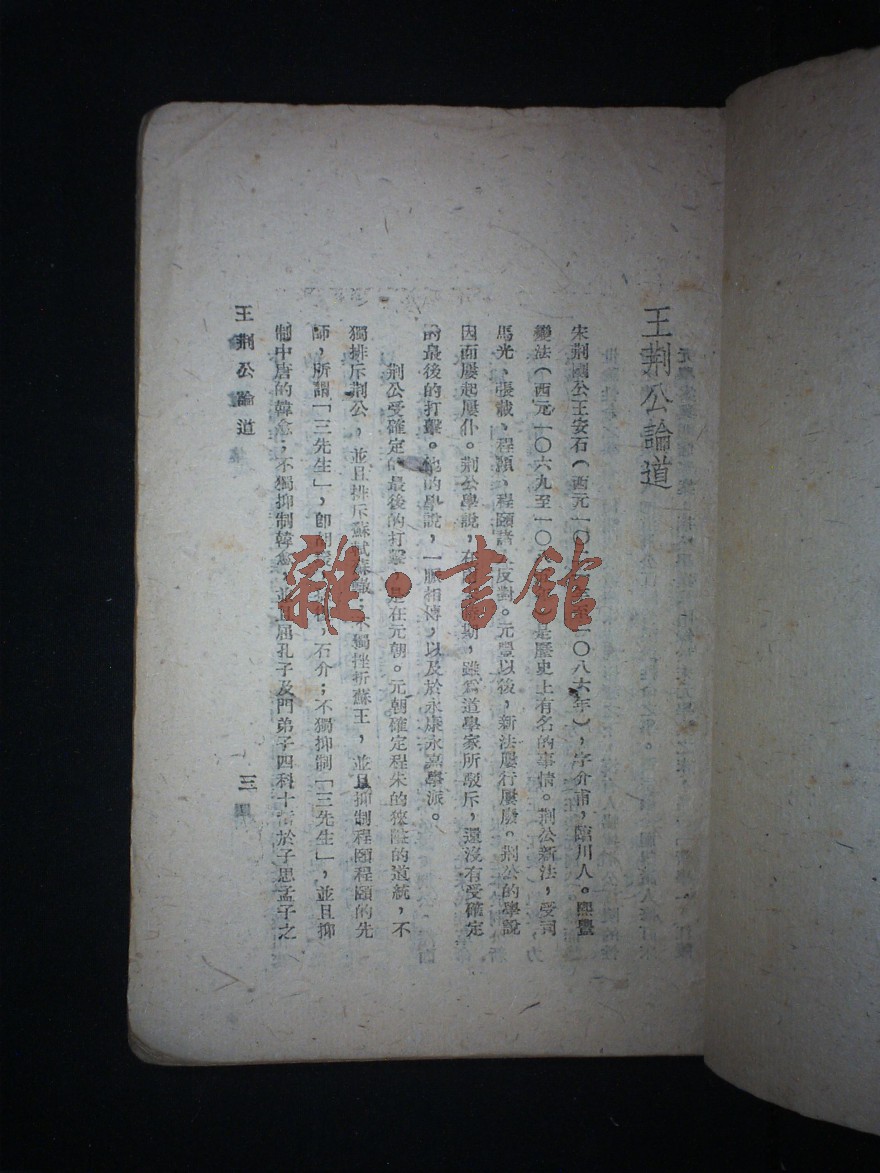 王荆公論道
宋荆國公王安石(西元一〇 一〇八六年),字介甫,臨川人。熙豐
變法(西元一〇六九至一〇 是歷史上有名的事情。荆公新法,受司
馬光,張載,程顥,程頤諸 反對。元豐以後,新法屢行屢廢。荆公的學說
因而屢起屢仆。荆公學說,在 期,雖爲道學家所駁斥,還沒有受確定
的最後的打擊。他的學說,一脈相傳,以及於永康永嘉學派。
荆公受確定的最後的打擊,是在元朝。元朝確定程朱的狹隘的道統,不
獨排斥荆公,並且排斥蘇軾蘇轍;不獨挫折蘇王,並且抑制程顥程頤的先
師,所謂「三先生」,卽胡 ,石介;不獨抑制「三先生」,並且抑
制中唐的韓愈;不獨抑制韓愈,並且屈孔子及門弟子四科十哲於子思孟子之
王荆公論道
三
雜·書館